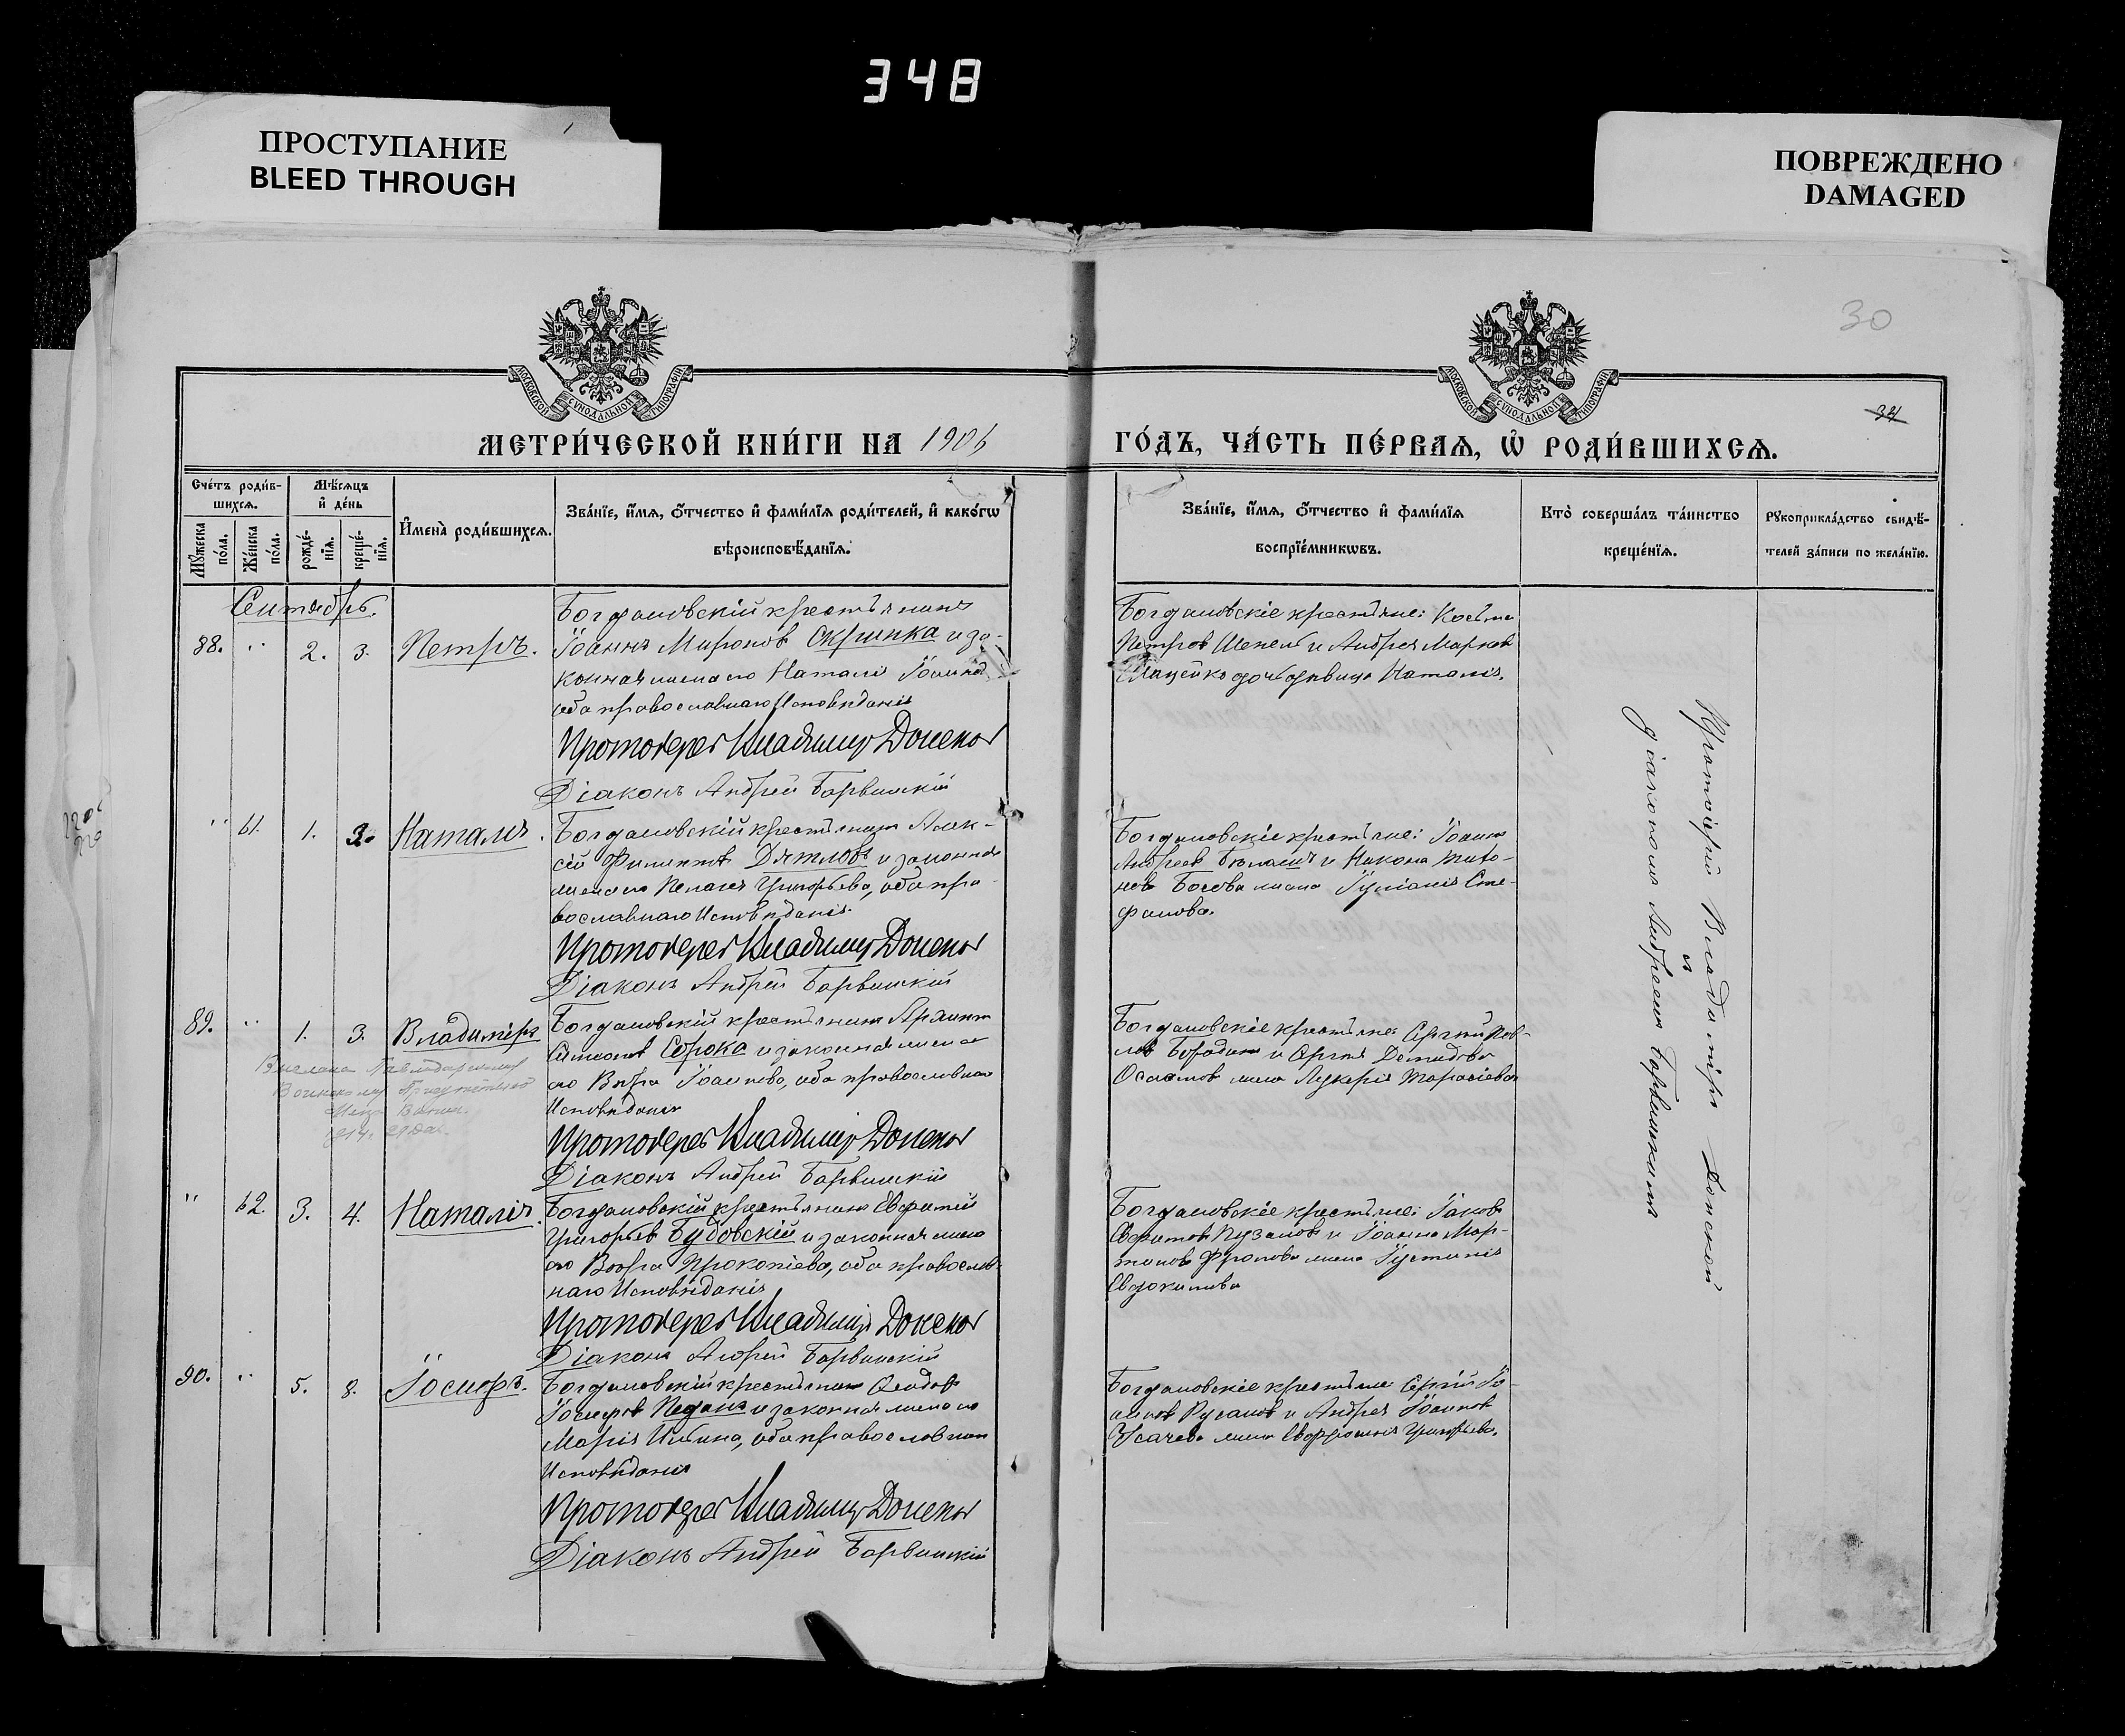 348
ПРОСТУПАНИЕ
BLEED THROUGH
ПОВРЕЖДЕНО
DAMAGED
30
34
МОСКОВСКОЙ СѴНОДАЛЬНОЙ ТИПОГРАФІИ
МОСКОВСКОЙ СѴНОДАЛЬНОЙ ТИПОГРАФІИ
МЕТРИ́ЧЕСКОЙ КНИ́ГИ НА 1906
ГО́ДЪ, ЧА́СТЬ ПЕ́РВАѦ, Ѡ РОДИ́ВШИХСѦ.
Сче́тъ роди́в-
шихсѧ.
Мѣ́сѧцъ
и҆ де́нь
Мꙋ́жеска по́ла.
Же́нска по́ла.
рожде́-
нїѧ.
креще́-
нїѧ.
И҆мена̀ роди́вшихсѧ.
Зва́нїе, и҆́мѧ, ѻ҆́тчество и҆ фами́лїѧ роди́телей, и҆ како́гѡ
вѣроисповѣ́данїѧ.
Зва́нїе, и҆́мѧ, ѻ҆́тчество и҆ фами́лїѧ
воспрїе́мникѡвъ.
Кто̀ соверша́лъ та́инство
креще́нїѧ.
Рꙋкоприкла́дство свидѣ́-
телей за́писи по жела́нїю.
Сентябрь.
88. " 2. 3. Петръ.
Богдановскій крестьянинъ
Іоаннъ Мироновъ Скрипка и за-
конная жена его Наталія Іоаннова
оба православнаго Исповѣданія
Протоіерей Владимиръ Донской
Діаконъ Андрей Барвинскій
Богдановскіе крестьяне: Косьма
Петровъ Шепель и Андрея Маркова
дочь дѣвица Наталія.
" 61. 1. 3. Наталія.
Богдановскій крестьянинъ Алек-
сій Филиповъ Дятловъ и законная
жена его Пелагея Григорьева, оба пра-
вославнаго Исповѣданія.
Протоіерей Владимиръ Донской
Діаконъ Андрей Барвинскій
Богдановскіе крестьяне: Іоаннъ
Андреевъ и Никона Тихо-
нова жена Іуліанія Сте-
фанова.
89. " 1. 3. Владиміръ
1914.
Богдановскій крестьянинъ Архипъ
Симоновъ Сорока и законная жена
его Вѣра Іоаннова, оба православнаго
Исповѣданія
Протоіерей Владимиръ Донской
Діаконъ Андрей Барвинскій
Богдановскіе крестьяне: Сергій Пав-
ловъ Бородинъ и Сергѣя Демидова
жена Лукерія Тарасіева
" 62. 3. 4. Наталія.
Богдановскій крестьянинъ Евфимій
Григорьевъ Будовскій и законная жена
его Вѣра Прокопіева, оба православ-
наго Исповѣданія
Протоіерей Владимиръ Донской
Діаконъ Андрей Барвинскій
Богдановскіе крестьяне: Іаковъ
Пузановъ и Іоанна Мар-
Фролова жена Іустинія
Евдокимова
90. " 5. 8. Іосифъ.
Богдановскій крестьянинъ Ѳеодоръ
Іосифовъ Педанъ и законная жена его
Марія Ильина, оба православнаго
Исповѣданія
Протоіерей Владимиръ Донской
Діаконъ Андрей Барвинскій
Богдановскіе крестьяне: Сергій Іо-
анновъ Русановъ и Андрея Іоаннова
Усачева жена Евфросинія Григорьева.
Протоіерей Владиміръ Донской
и
діакономъ Андреемъ Барвинскимъ